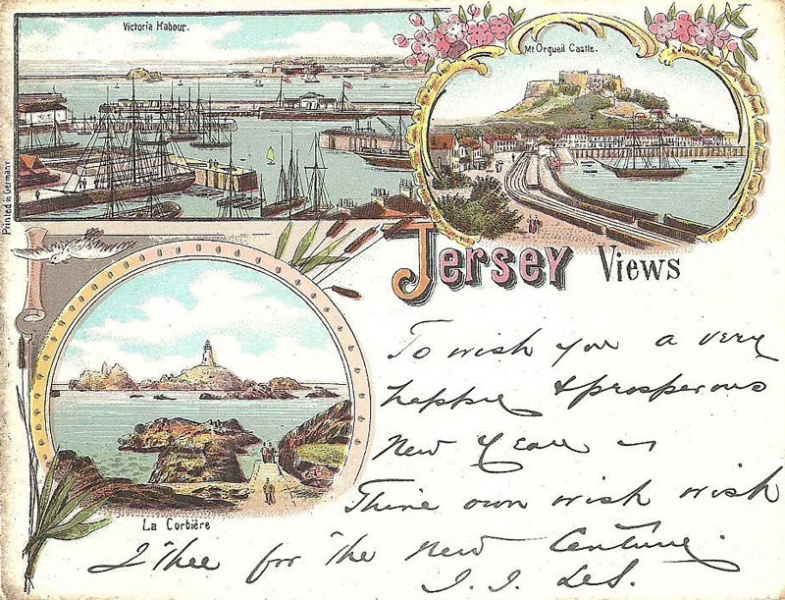 Victoria Habour.
Mt Orgueil Castle.
Printed in Germany
Jersey Views
La Corbière
To wish you a very
happy & prosperous
New Year
Thine own wish wish
I thee for the new Century.
J. J. LeS.